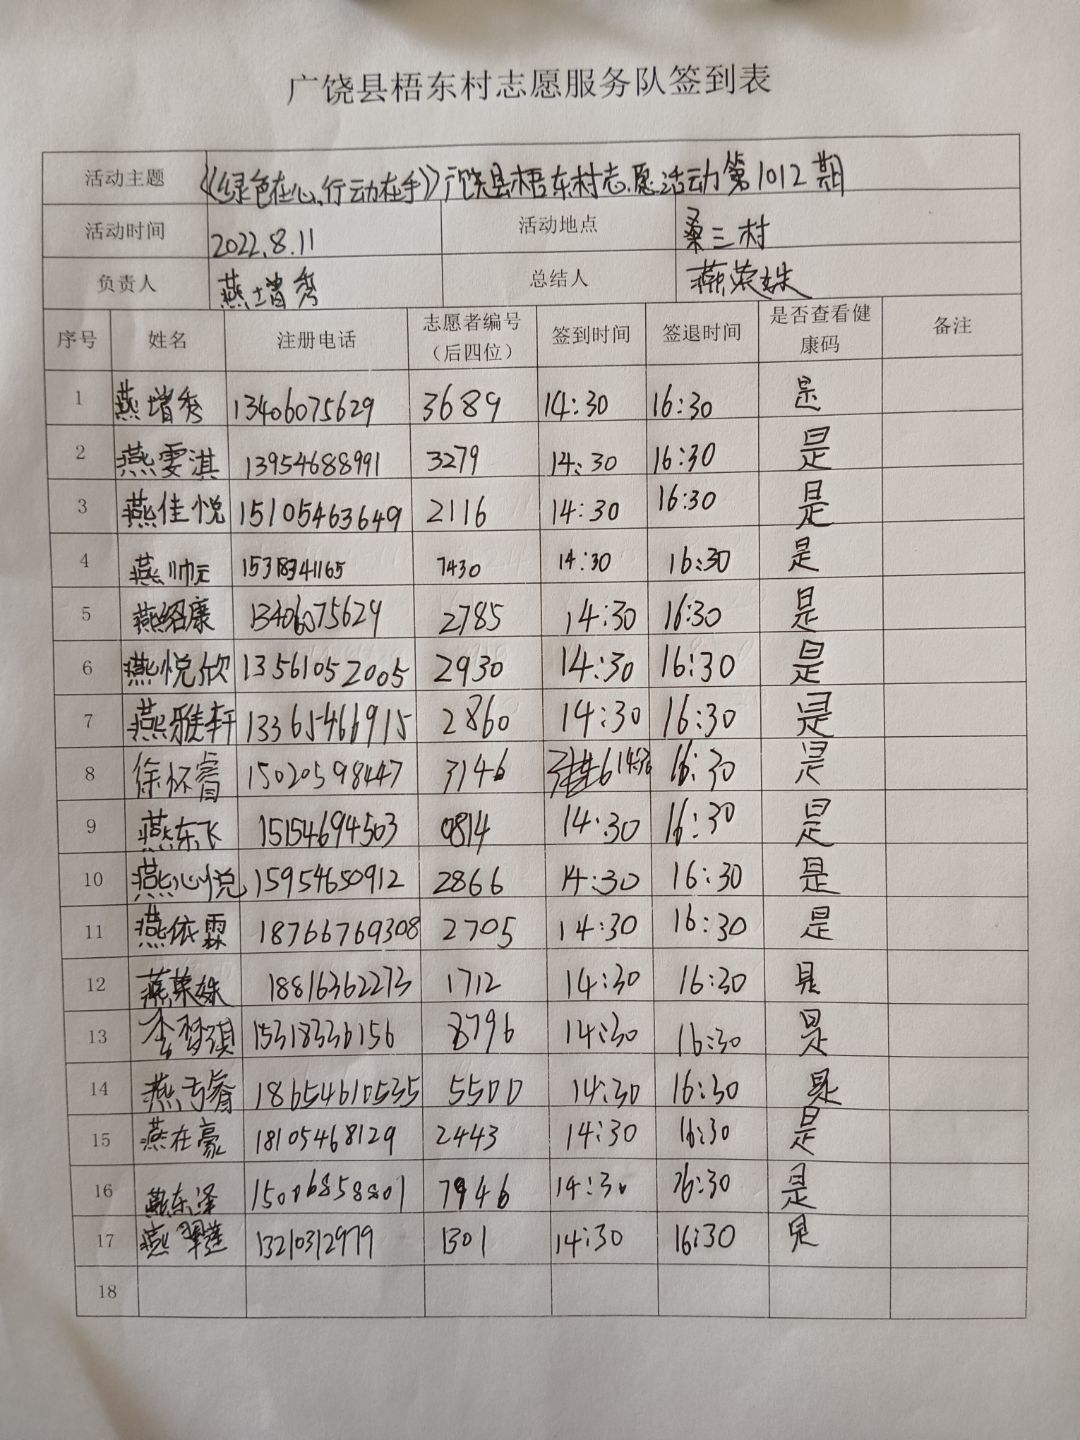 广饶县梧东村志愿服务队签到表
活动主题 《绿色在心、行动在手》广饶县梧东村志愿活动第1012期
活动时间 2022.8.11 活动地点 桑三村
负责人 燕增秀 总结人 燕荣姝
序号 姓名 注册电话 志愿者编号（后四位） 签到时间 签退时间 是否查看健康码 备注
1 燕增秀 13406075629 3689 14:30 16:30 是
2 燕雯淇 13954688991 3279 14:30 16:30 是
3 燕佳悦 15105463649 2116 14:30 16:30 是
4 燕帅元 15318941165 7430 14:30 16:30 是
5 燕绍康 13406075629 2785 14:30 16:30 是
6 燕悦欣 13561052005 2930 14:30 16:30 是
7 燕雅轩 13365466915 2860 14:30 16:30 是
8 徐怀睿 15020598447 3146 14:30 16:30 是
9 燕东飞 15154694503 0814 14:30 16:30 是
10 燕心悦 15954650912 2866 14:30 16:30 是
11 燕依霖 18766769308 2705 14:30 16:30 是
12 燕荣姝 18816362273 1712 14:30 16:30 是
13 李梦琪 15318336156 8796 14:30 16:30 是
14 燕 睿 18654610535 5500 14:30 16:30 是
15 燕在豪 18105468129 2443 14:30 16:30 是
16 燕东泽 15006858801 7946 14:30 16:30 是
17 燕 13210312979 1301 14:30 16:30 是
18